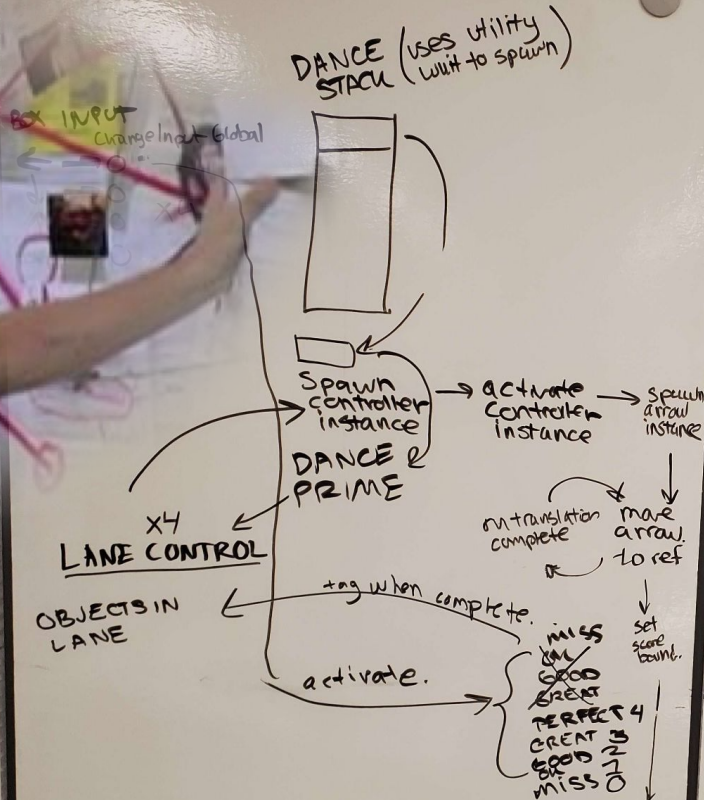 DANCE (uses utility
STACK wait to spawn)
BOX INPUT
Change Input Global
Spawn
controller
instance
activate
controller
instance
spawn
arrow
instance
DANCE
PRIME
x4
LANE CONTROL
on translation
complete
move
arrow.
to ref
OBJECTS IN
LANE
tag when complete.
set
score
bound.
activate.
MISS
OK
GOOD
GREAT
PERFECT 4
GREAT 3
GOOD 2
OK 1
MISS 0